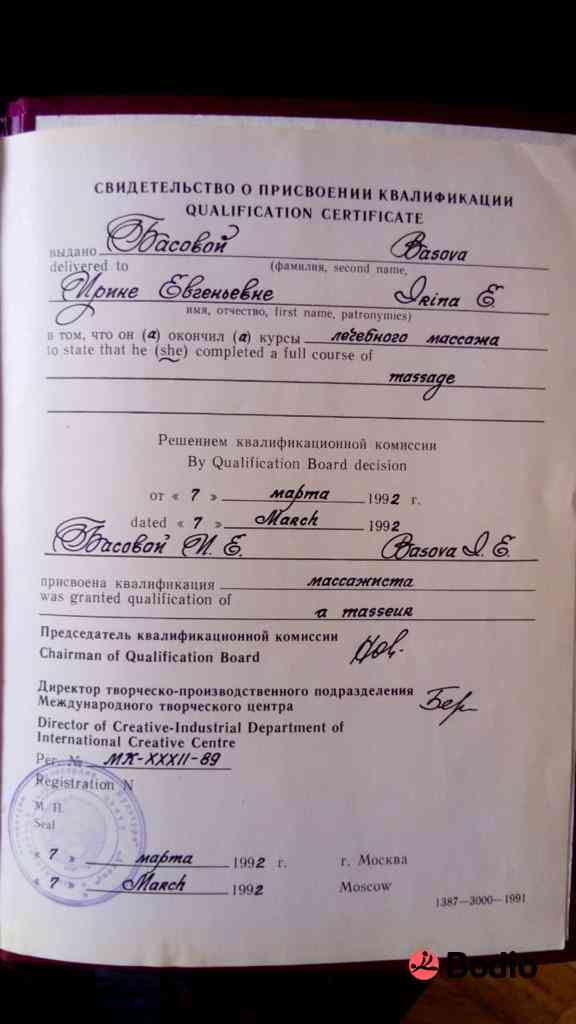 СВИДЕТЕЛЬСТВО О ПРИСВОЕНИИ КВАЛИФИКАЦИИ
QUALIFICATION CERTIFICATE
выдано Басовой Basova
delivered to (фамилия, second name,
Ирине Евгеньевне Irina E.
имя, отчество, first name, patronymies)
в том, что он (а) окончил (а) курсы лечебного массажа
to state that he (she) completed a full course of
massage
Решением квалификационной комиссии
By Qualification Board decision
от « 7 » марта 1992 г.
dated « 7 » March 1992
Басовой И. Е. Basova I. E.
присвоена квалификация массажиста
was granted qualification of a masseur
Председатель квалификационной комиссии
Chairman of Qualification Board
Директор творческо-производственного подразделения
Международного творческого центра
Director of Creative-Industrial Department of
International Creative Centre
Рег. № МК-XXXII-89
Registration N
М. П.
Seal
« 7 » марта 1992 г. г. Москва
« 7 » March 1992 Moscow
1387—3000—1991
Bodio